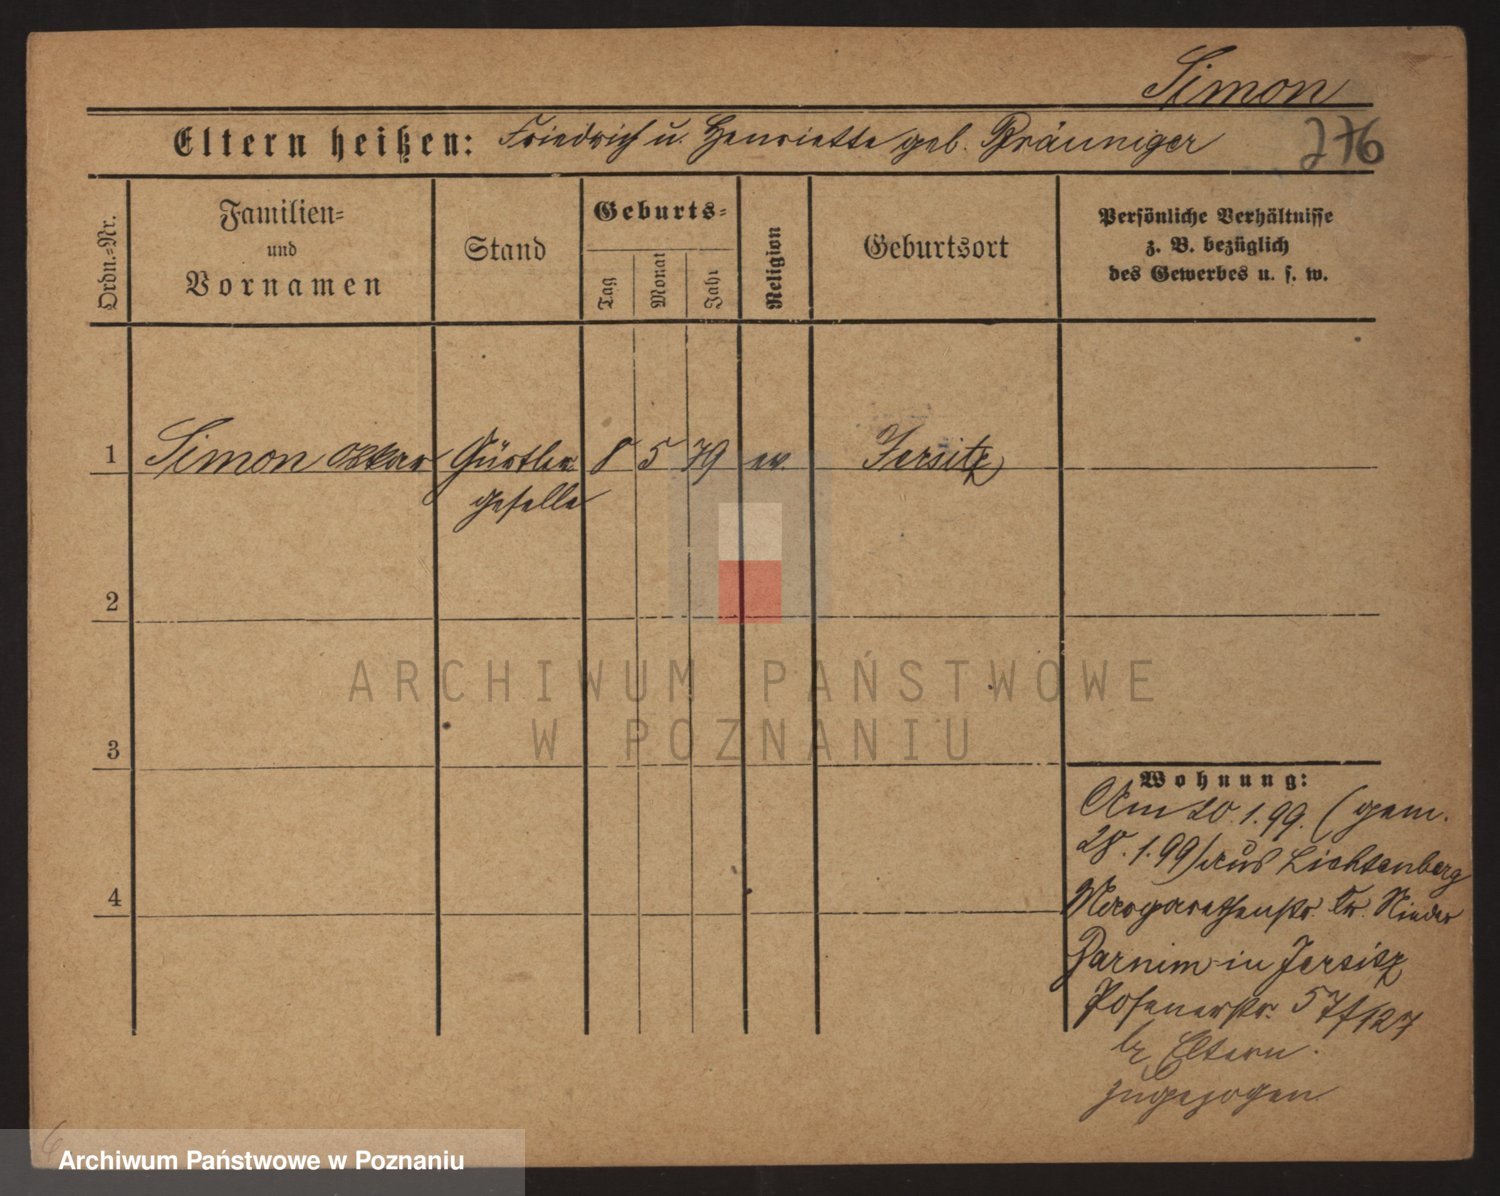 Simon
Eltern heißen: Friedrich u. Henriette geb. Bräuniger
276
Ordn.-Nr.
Familien-
und
Vornamen
Stand
Geburts-
Tag
Monat
Jahr
Religion
Geburtsort
Persönliche Verhältnisse
z. B. bezüglich
des Gewerbes u. s. w.
1 Simon Oskar Gürtler 8 5 79 ev. Jersitz
geselle
2
3
4
Wohnung:
Am 20.1.99. (gem.
28.1.99) aus Lichtenberg
Margarethenstr. Kr. Nieder
Barnim in Jersitz
Posenerstr. 57/127
bz Eltern.
zugezogen
ARCHIWUM PAŃSTWOWE
W POZNANIU
Archiwum Państwowe w Poznaniu